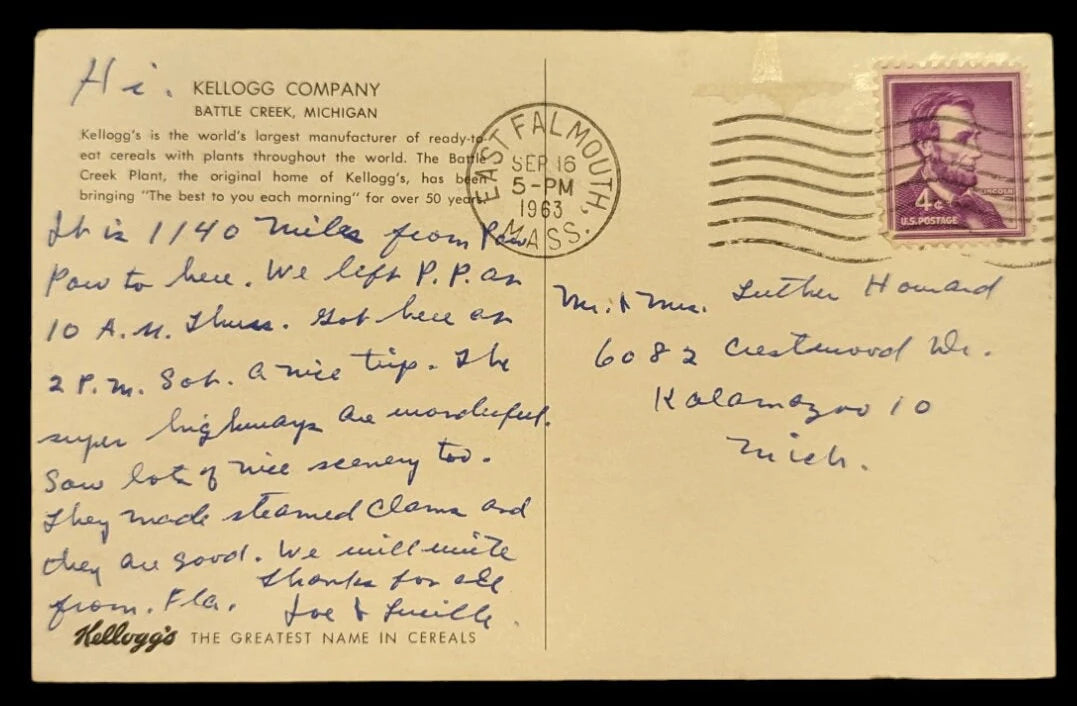 Hi.
KELLOGG COMPANY
BATTLE CREEK, MICHIGAN
Kellogg's is the world's largest manufacturer of ready-to-
eat cereals with plants throughout the world. The Battle
Creek Plant, the original home of Kellogg's, has been
bringing "The best to you each morning" for over 50 years.
It is 1140 miles from Paw
Paw to here. We left P.P. at
10 A.M. Thurs. Got here at
2 P.M. Sat. A nice trip. The
super highways are wonderful.
Saw lots of nice scenery too.
They made steamed clams and
they are good. We will write
from. Fla. Thanks for all
Joe & Lucille.
Kellogg's THE GREATEST NAME IN CEREALS
EAST FALMOUTH, MASS.
SEP 16
5-PM
1963
LINCOLN
4¢
U.S. POSTAGE
Mr. & Mrs. Luther Howard
6082 Crestwood Dr.
Kalamazoo 10
Mich.